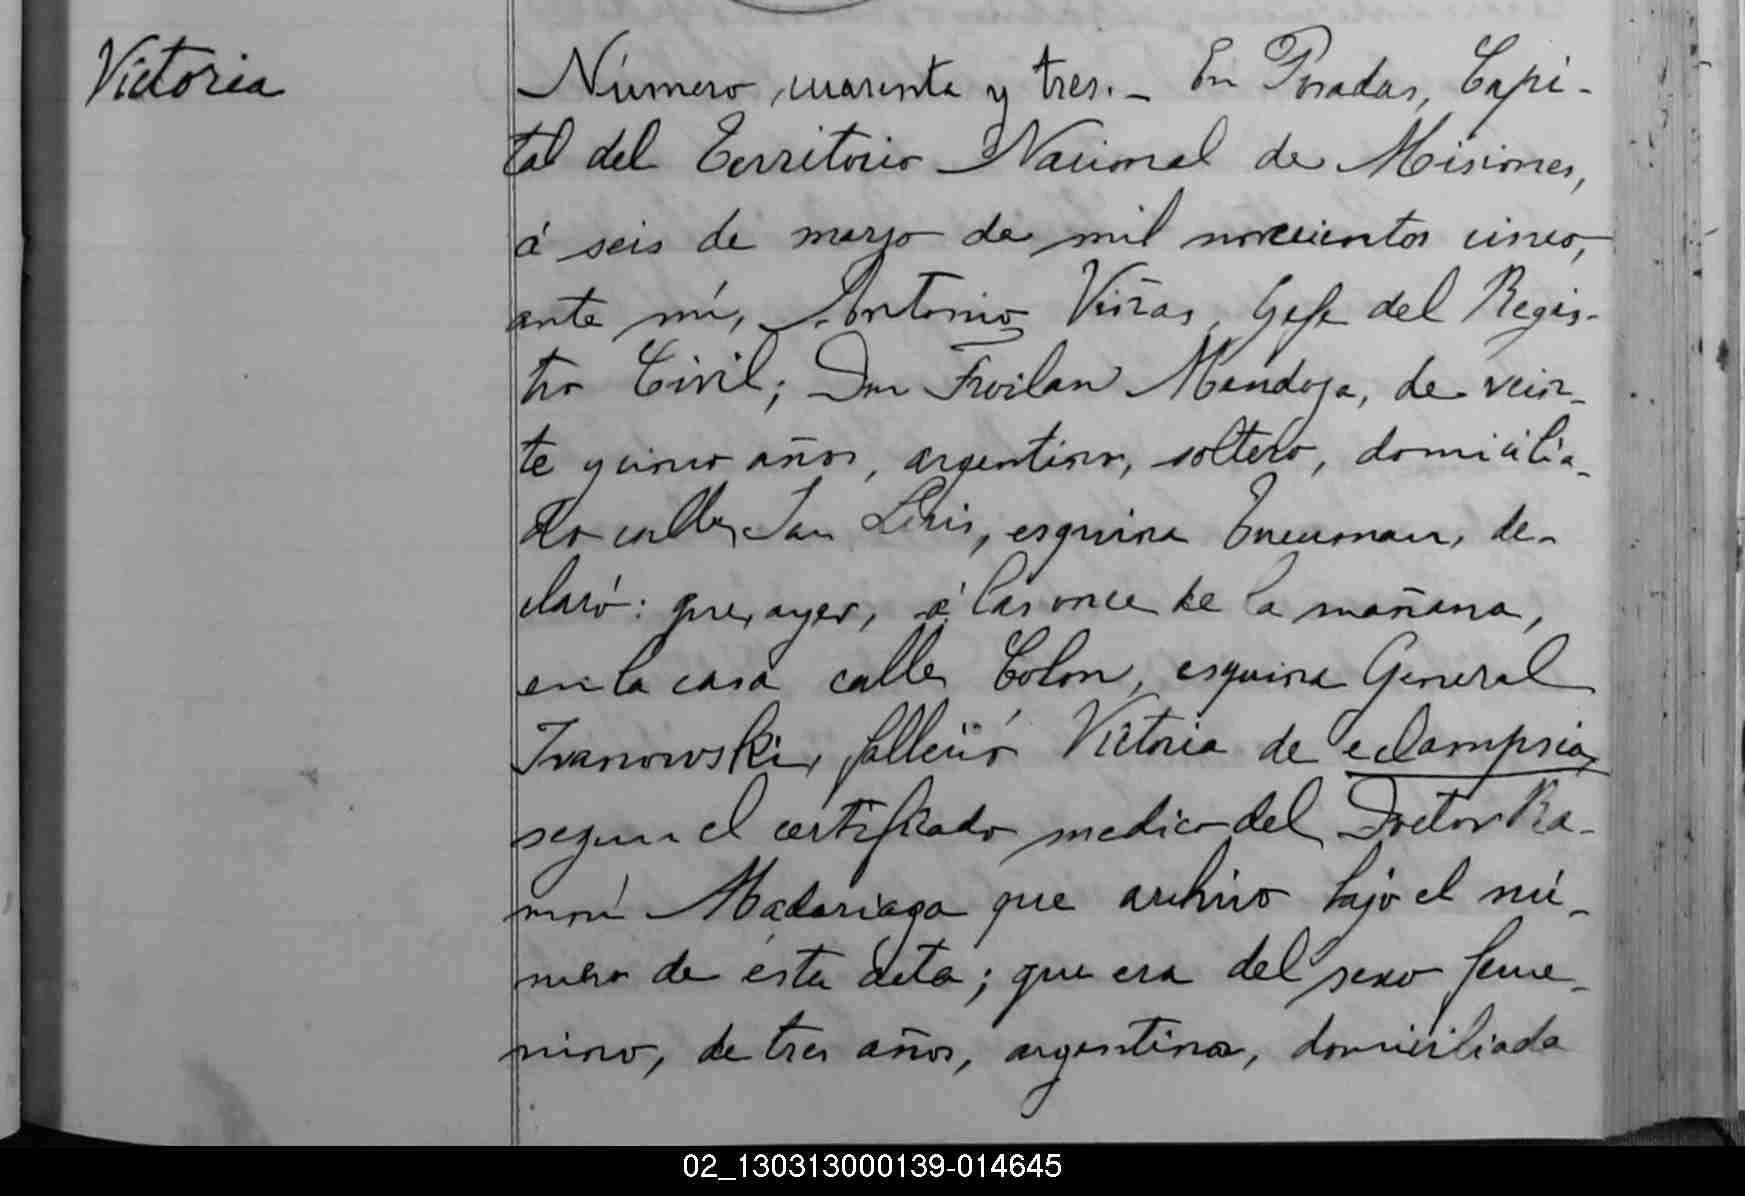 Victoria
Número cuarenta y tres. - En Posadas, Capi-
tal del Territorio Nacional de Misiones,
á seis de marzo de mil novecientos cinco,
ante mí, Antonio Viñas, Gefe del Regis-
tro Civil; Don Froilan Mendoza, de vein-
te y cinco años, argentino, soltero, domicilia-
do calle San Luis, esquina Tucuman, de-
claró: que, ayer, á las once de la mañana,
en la casa calle Colon, esquina General
Ivanowski, falleció Victoria de eclampsia,
segun el certificado medico del Doctor Ra-
mon Madariaga que archivo bajo el nú-
mero de ésta acta; que era del sexo feme-
nino, de tres años, argentina, domiciliada
02_130313000139-014645